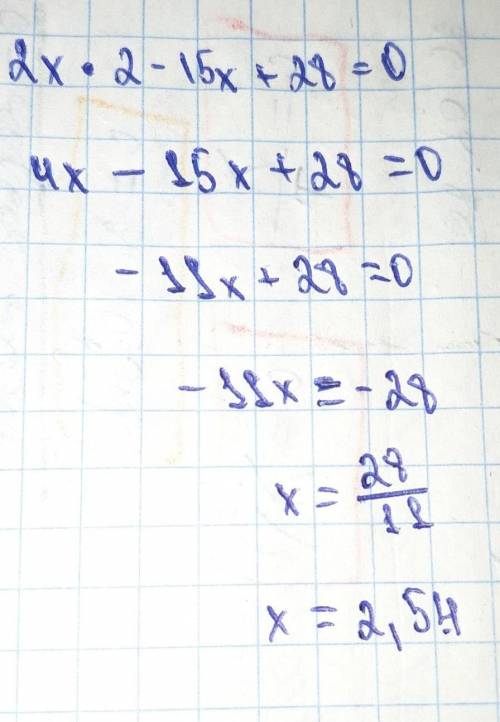 2x · 2 - 15x + 28 = 0
4x - 15x + 28 = 0
- 11x + 28 = 0
- 11x = - 28
x = 28/11
x = 2,54